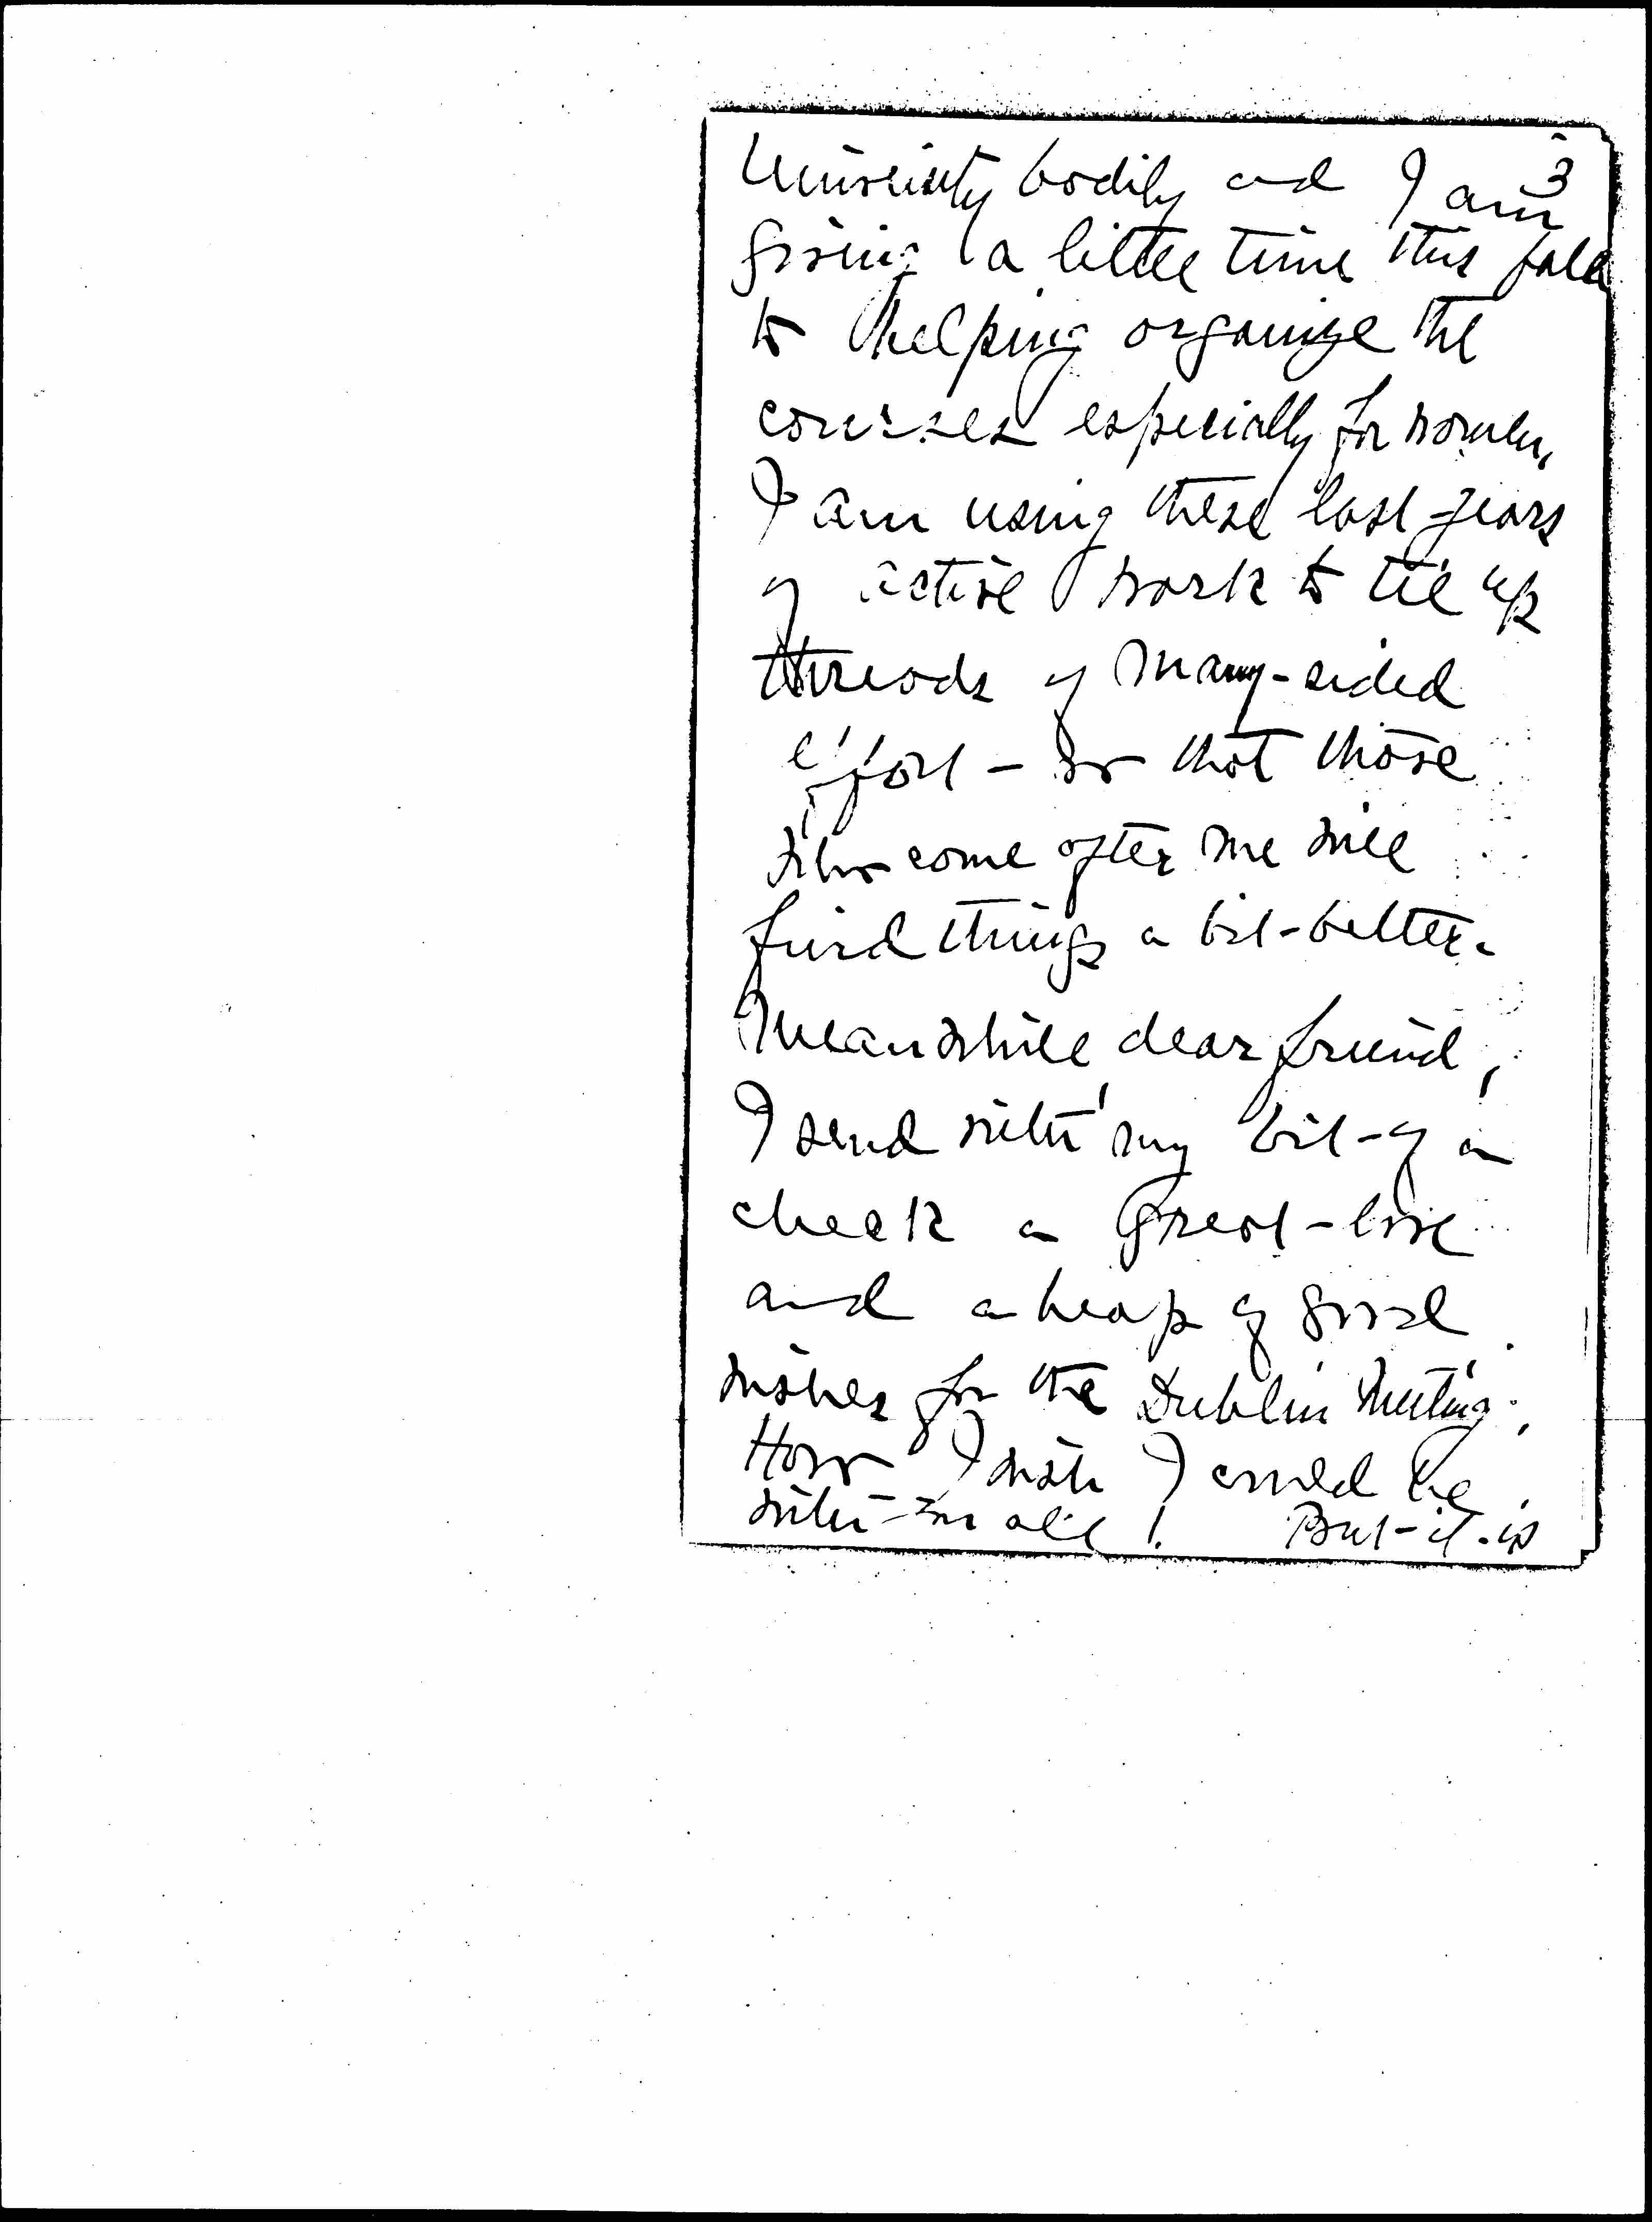 3
University bodily and I am
giving a little time this fall
to helping organize the
courses especially for women.
I am using these last years
of active work to tie up
threads of many-sided
effort - so that those
who come after me will
find things a bit better.
Meanwhile dear friend,
I send with my bit of a
check a great love
and a heap of good
wishes for the Dublin meeting.
How I wish I could be
with you all! But it is